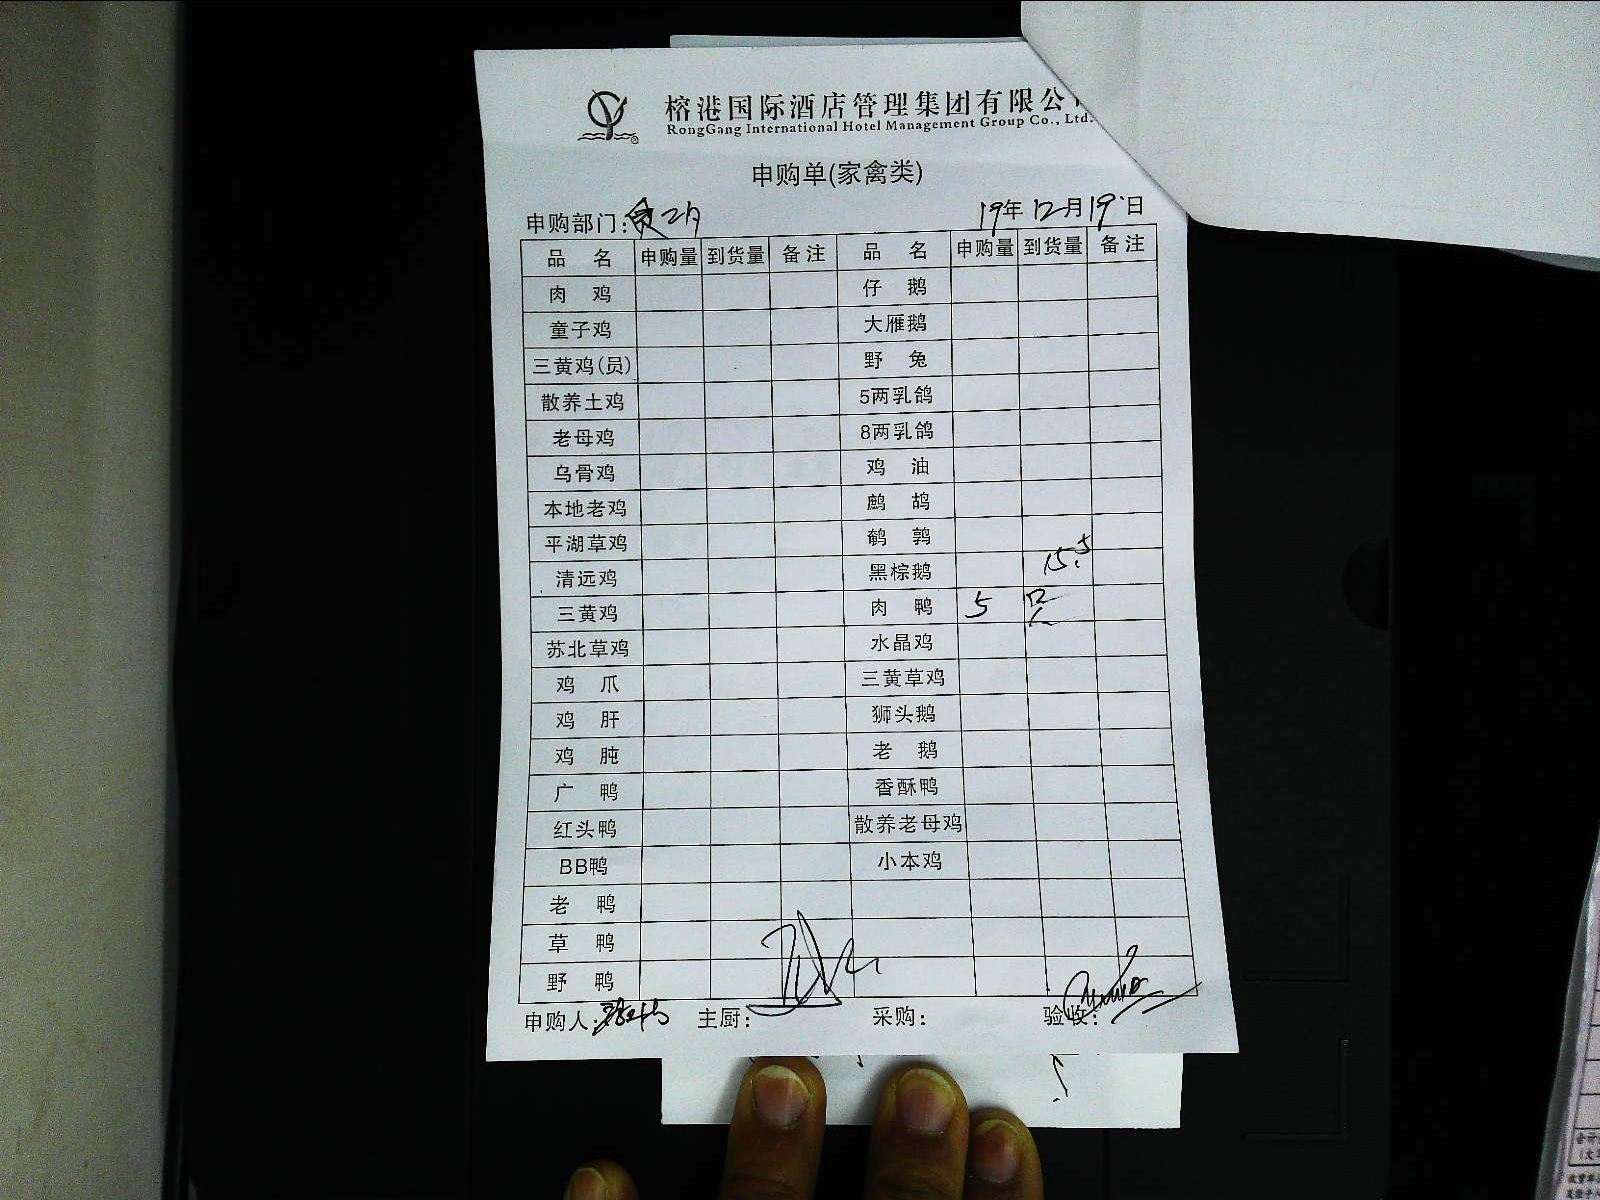 榕港国际酒店管理集团有限公
RongGang International Hotel Management Group Co., Ltd.
申购单(家禽类)
申购部门: 19年12月19日
品 名 申购量 到货量 备注 品 名 申购量 到货量 备注
肉 鸡 仔 鹅
童子鸡 大雁鹅
三黄鸡(员) 野 兔
散养土鸡 5两乳鸽
老母鸡 8两乳鸽
乌骨鸡 鸡 油
本地老鸡 鹧 鸪
平湖草鸡 鹌 鹑
清远鸡 黑棕鹅 15.5
三黄鸡 肉 鸭 5 只
苏北草鸡 水晶鸡
鸡 爪 三黄草鸡
鸡 肝 狮头鹅
鸡 肫 老 鹅
广 鸭 香酥鸭
红头鸭 散养老母鸡
BB鸭 小本鸡
老 鸭
草 鸭
野 鸭
申购人: 主厨: 采购: 验收: